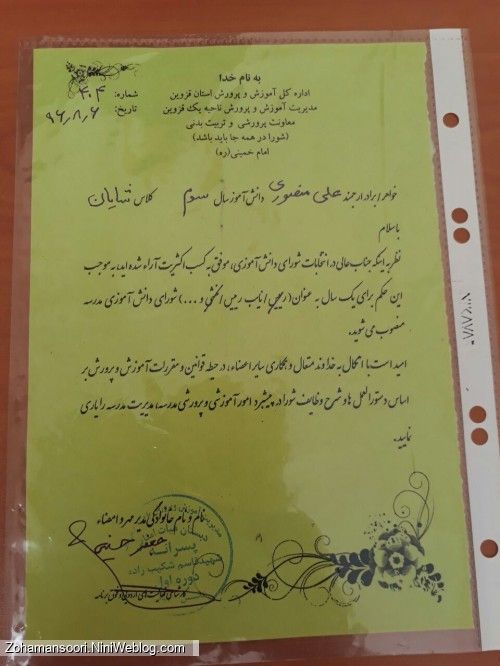 به نام خدا
اداره کل آموزش و پرورش استان قزوین
شماره: ۴۰۴
مدیریت آموزش و پرورش ناحیه یک قزوین
تاریخ: ۹۶،۸،۶
معاونت پرورشی و تربیت بدنی
(شورا در همه جا باید باشد)
امام خمینی(ره)
خواهر/برادر ارجمند علی منصوری دانش آموز سال سوم کلاس شایان
با سلام
نظر به اینکه جناب عالی در انتخابات شورای دانش آموزی، موفق به کسب اکثریت آراء شده اید به موجب
این حکم برای یک سال به عنوان(رییس/نایب رییس/منشی و ...) شورای دانش آموزی مدرسه
منصوب می شوید.
امید است با اتکال به خداوند متعال و همکاری سایر اعضاء، در حیطه قوانین و مقررات آموزش و پرورش بر
اساس دستورالعمل ها و شرح وظایف شورا در پیشبرد امور آموزشی و پرورشی مدرسه، مدیریت مدرسه را یاری
نمایید.
نام و نام خانوادگی مدیر مهر و امضاء
پسرانه
شهید قاسم شکیب زاده
دوره اول
Zohamansoori.NiniWeblog.com